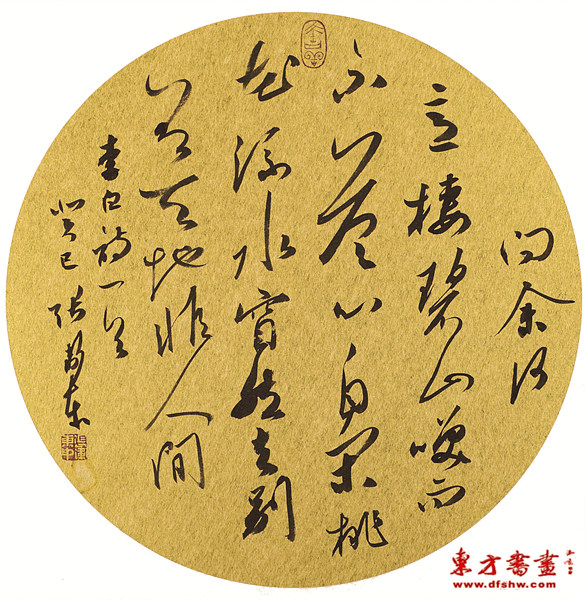 问余何
意棲碧山咲而
不答心自闲桃
花流水窅然去别
有天地非人间
李白诗一首
癸巳 张
東方書畫
www.dfshw.com